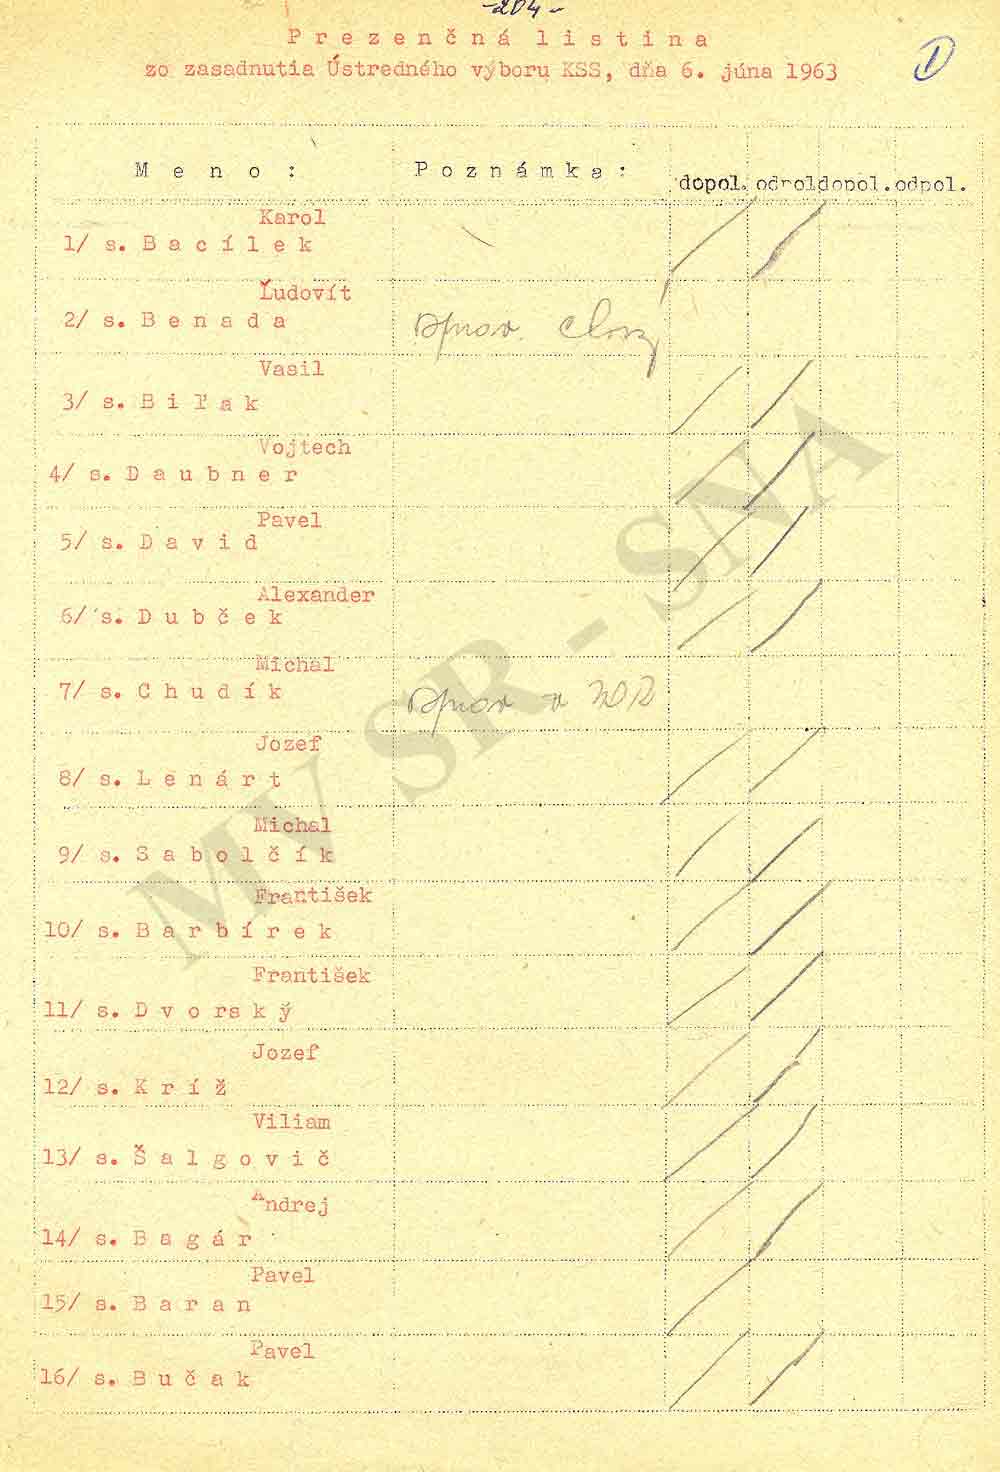 -204-
Prezenčná listina
zo zasadnutia Ústredného výboru KSS, dňa 6. júna 1963
Meno: Poznámka: dopol. odpol. dopol. odpol.
Karol
1/ s. Bacílek
Ľudovít
2/ s. Benada
Vasil
3/ s. Biľak
Vojtech
4/ s. Daubner
Pavel
5/ s. David
Alexander
6/ s. Dubček
Michal
7/ s. Chudík
Jozef
8/ s. Lenárt
Michal
9/ s. Sabolčík
František
10/ s. Barbírek
František
11/ s. Dvorský
Jozef
12/ s. Kríž
Viliam
13/ s. Šalgovič
Andrej
14/ s. Bagár
Pavel
15/ s. Baran
Pavel
16/ s. Bučak
MV SR - SNA